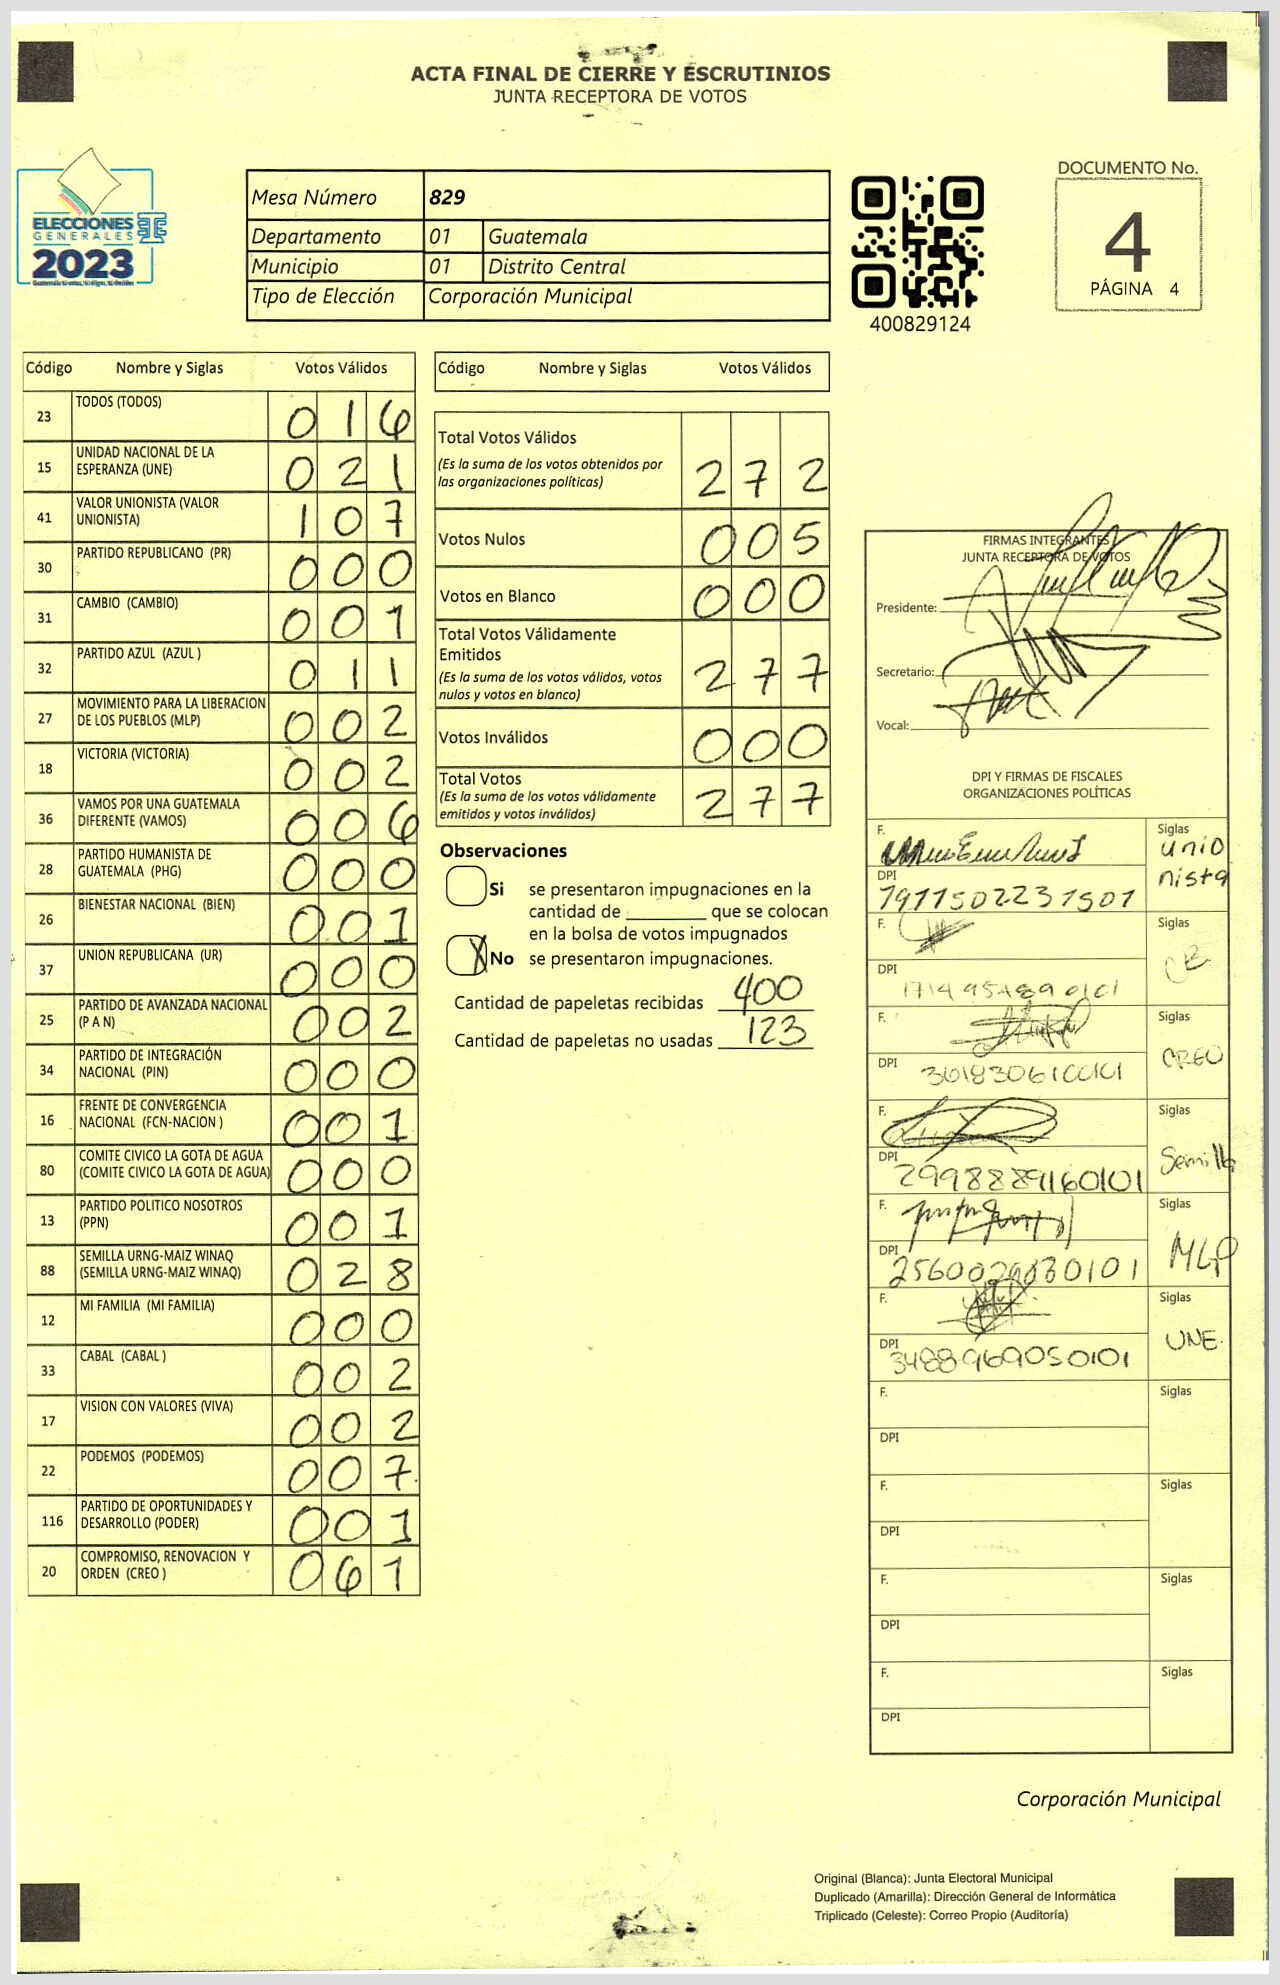 ACTA FINAL DE CIERRE Y ESCRUTINIOS
JUNTA RECEPTORA DE VOTOS
ELECCIONES
GENERALES
2023
Mesa Número 829
Departamento 01 Guatemala
Municipio 01 Distrito Central
Tipo de Elección Corporación Municipal
400829124
DOCUMENTO No.
4
PÁGINA 4
Código Nombre y Siglas Votos Válidos
23 TODOS (TODOS) 0 1 6
15 UNIDAD NACIONAL DE LA ESPERANZA (UNE) 0 2 1
41 VALOR UNIONISTA (VALOR UNIONISTA) 1 0 7
30 PARTIDO REPUBLICANO (PR) 0 0 0
31 CAMBIO (CAMBIO) 0 0 1
32 PARTIDO AZUL (AZUL ) 0 1 1
27 MOVIMIENTO PARA LA LIBERACION DE LOS PUEBLOS (MLP) 0 0 2
18 VICTORIA (VICTORIA) 0 0 2
36 VAMOS POR UNA GUATEMALA DIFERENTE (VAMOS) 0 0 6
28 PARTIDO HUMANISTA DE GUATEMALA (PHG) 0 0 0
26 BIENESTAR NACIONAL (BIEN) 0 0 1
37 UNION REPUBLICANA (UR) 0 0 0
25 PARTIDO DE AVANZADA NACIONAL (P A N) 0 0 2
34 PARTIDO DE INTEGRACIÓN NACIONAL (PIN) 0 0 0
16 FRENTE DE CONVERGENCIA NACIONAL (FCN-NACION ) 0 0 1
80 COMITE CIVICO LA GOTA DE AGUA (COMITE CIVICO LA GOTA DE AGUA) 0 0 0
13 PARTIDO POLITICO NOSOTROS (PPN) 0 0 1
88 SEMILLA URNG-MAIZ WINAQ (SEMILLA URNG-MAIZ WINAQ) 0 2 8
12 MI FAMILIA (MI FAMILIA) 0 0 0
33 CABAL (CABAL ) 0 0 2
17 VISION CON VALORES (VIVA) 0 0 2
22 PODEMOS (PODEMOS) 0 0 7
116 PARTIDO DE OPORTUNIDADES Y DESARROLLO (PODER) 0 0 1
20 COMPROMISO, RENOVACION Y ORDEN (CREO ) 0 6 1
Código Nombre y Siglas Votos Válidos
Total Votos Válidos 2 7 2
(Es la suma de los votos obtenidos por
las organizaciones políticas)
Votos Nulos 0 0 5
Votos en Blanco 0 0 0
Total Votos Válidamente
Emitidos 2 7 7
(Es la suma de los votos válidos, votos
nulos y votos en blanco)
Votos Inválidos 0 0 0
Total Votos 2 7 7
(Es la suma de los votos válidamente
emitidos y votos inválidos)
Observaciones
Si se presentaron impugnaciones en la
cantidad de ________ que se colocan
en la bolsa de votos impugnados
X No se presentaron impugnaciones.
Cantidad de papeletas recibidas 400
Cantidad de papeletas no usadas 123
FIRMAS INTEGRANTES
JUNTA RECEPTORA DE VOTOS
Presidente:
Secretario:
Vocal:
DPI Y FIRMAS DE FISCALES
ORGANIZACIONES POLÍTICAS
F. Siglas unio
nista
DPI 1911502231501
F. Siglas
DPI
F. Siglas CREO
DPI
F. Siglas Semilla
DPI 2998889160101
F. Siglas MLP
DPI
F. Siglas UNE.
DPI 3488969050101
F. Siglas
DPI
F. Siglas
DPI
F. Siglas
DPI
F. Siglas
DPI
Corporación Municipal
Original (Blanca): Junta Electoral Municipal
Duplicado (Amarilla): Dirección General de Informática
Triplicado (Celeste): Correo Propio (Auditoría)